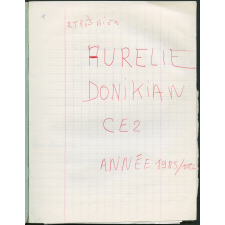 AURELIE
DONIKIAN
CE2
ANNÉE 1985/86